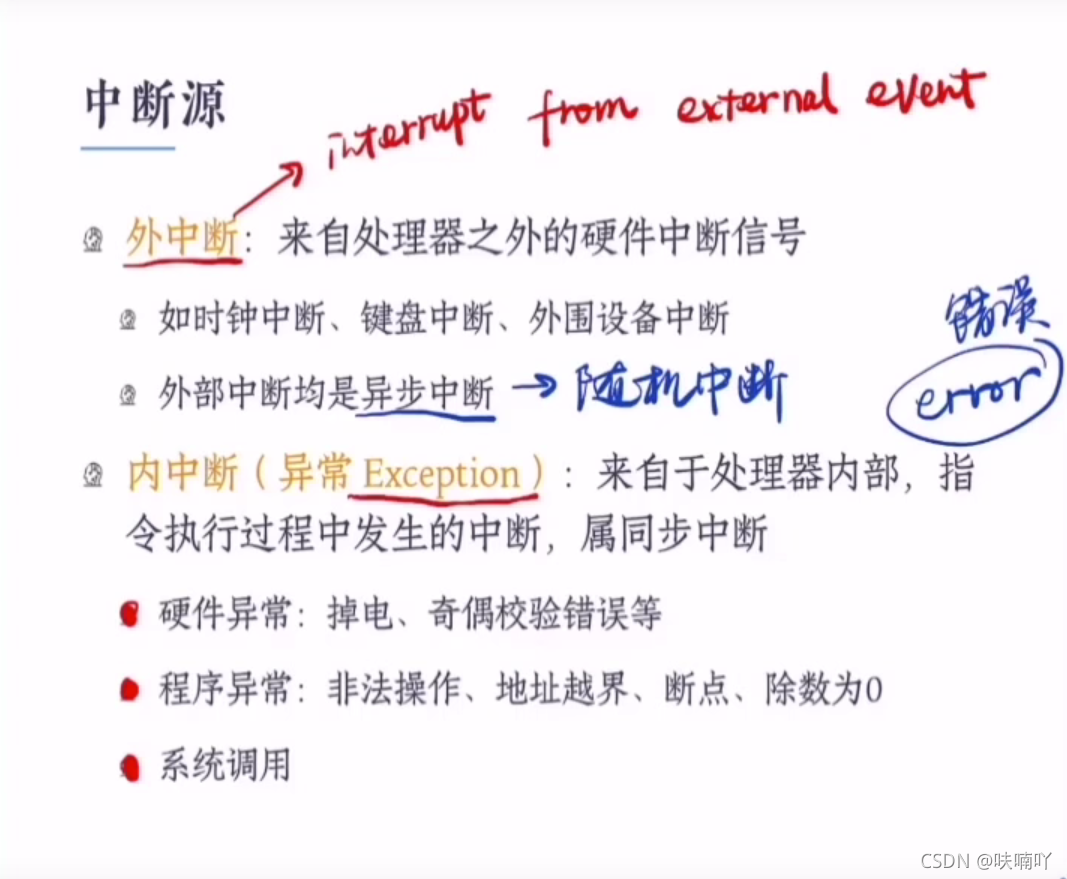 中断源
interrupt from external event
外中断：来自处理器之外的硬件中断信号
如时钟中断、键盘中断、外围设备中断
错误
外部中断均是异步中断 → 随机中断
error
内中断（异常 Exception）：来自于处理器内部，指
令执行过程中发生的中断，属同步中断
硬件异常：掉电、奇偶校验错误等
程序异常：非法操作、地址越界、断点、除数为0
系统调用
CSDN @呋喃吖